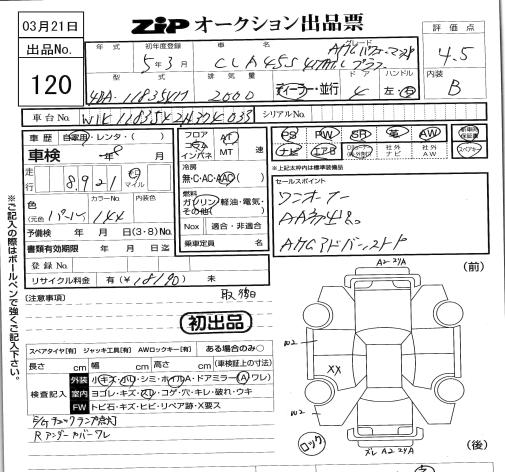 03月21日
ZIP オークション出品票
評価点
4.5
内装
B
出品No.
120
年式
初年度登録
5年3月
車名
グレード
CLA45S 4マチック プラス
型式
4BA-118354M
排気量
2000
ドア
4
ハンドル
左・右
ディーラー・並行
車台No.
W1K1183542N304033
シリアルNo.
車歴
自家用・レンタ・( )
車検
年 8 月
走行
8,921
km
マイル
色
(元色 パール)
カラーNo.
144
内装色
予備検 年 月 日(3・8)No.
書類有効期限 年 月 日迄
登録No.
リサイクル料金 有(¥18190) 未
フロア
コラム
インパネ
AT
MT
速
冷房
無・C・AC・AAC
燃料
ガソリン・軽油・電気・
その他( )
Nox
適合・非適合
乗車定員 名
PS
PW
SR
革
AW
新車時保証書
ナビ
エアB
社外ナビ
社外AW
スペアキー
※上記太枠内は標準装備品
セールスポイント
ワンオーナー
AA初出品。
※ご記入の際はボールペンで強くご記入下さい。
(注意事項)
初出品
スペアタイヤ[有] ジャッキ工具[有] AWロックキー[有] ある場合のみ○
長さ cm 幅 cm 高さ cm (車検証上の寸法)
検査記入
外装 小キズ・凹・シミ・ホイルA・ドアミラー(A ワレ)
室内 ヨゴレ・キズ・スレ・コゲ・穴・キレ・破れ・ウキ
FW トビ石・キズ・ヒビ・リペア跡・X要ス
E/Gチェックランプ点灯
Rアンダーカバーワレ
(前)
A2
W2
XX
W2
ロック
(後)